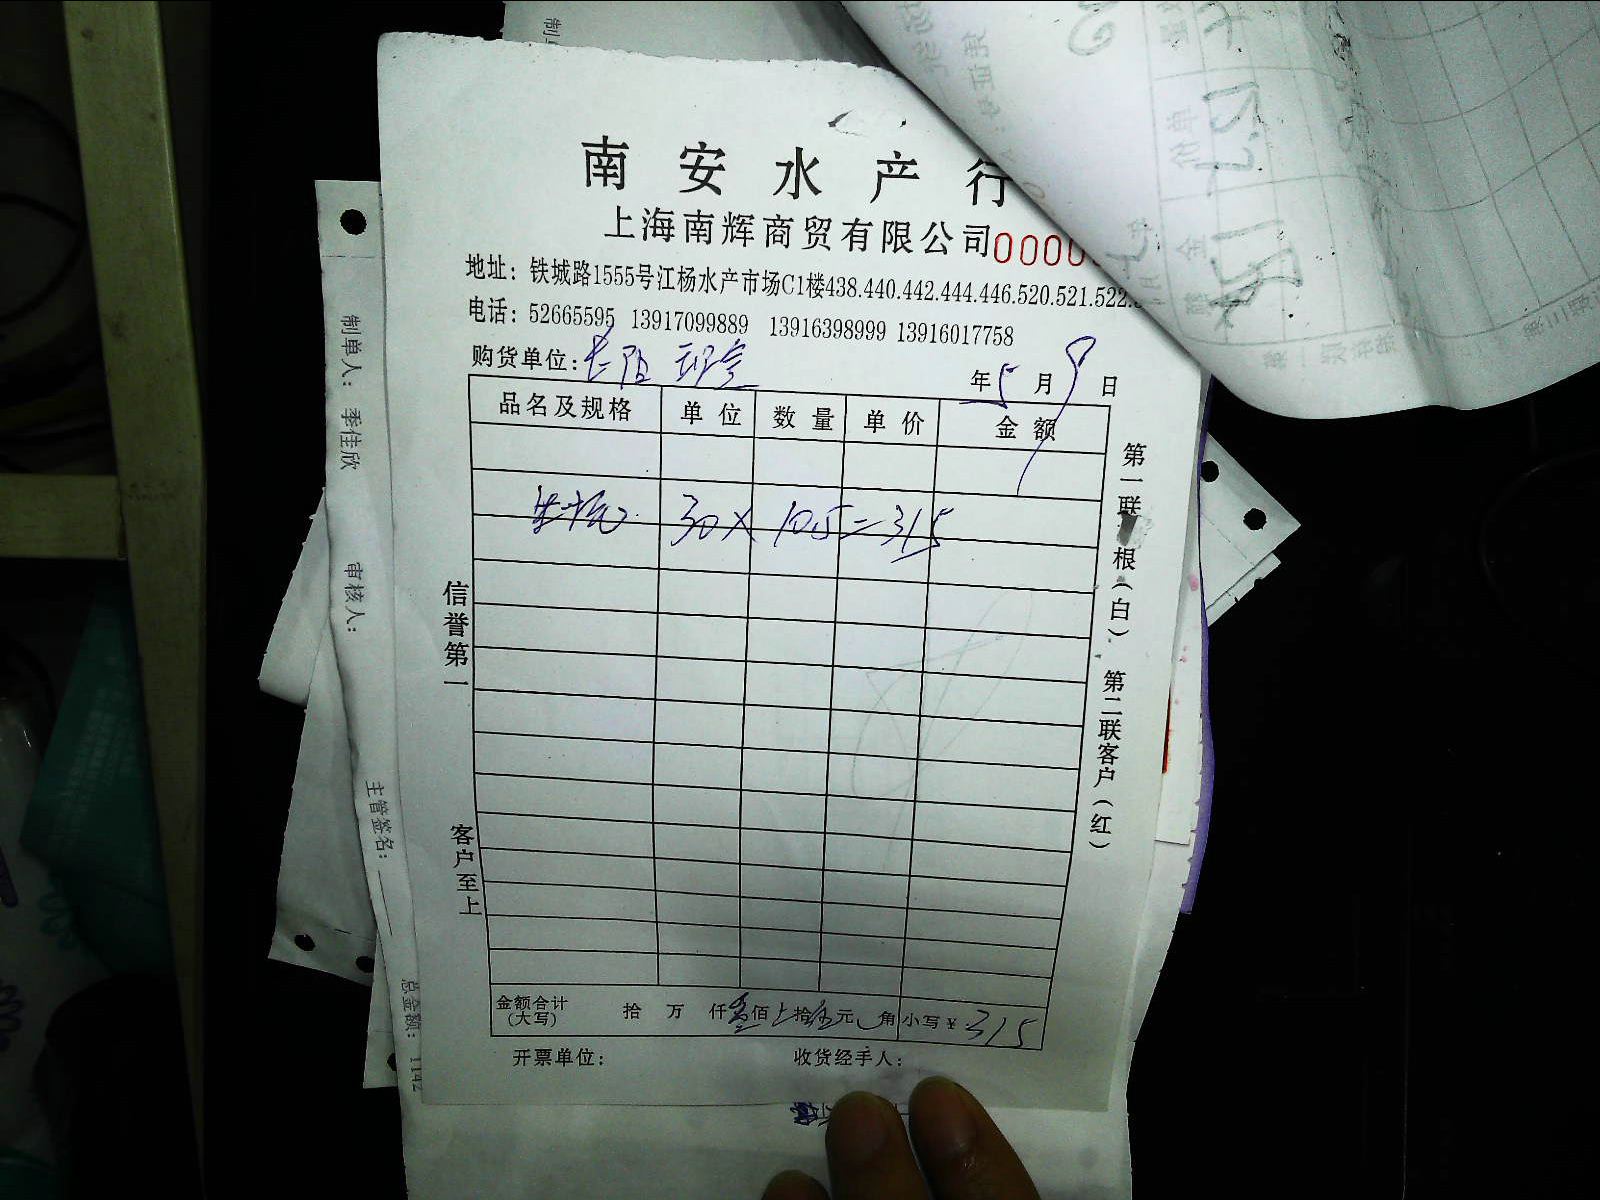 南安水产行
上海南辉商贸有限公司 0000
地址：铁城路1555号江杨水产市场C1楼438.440.442.444.446.520.521.522.
电话：52665595 13917099889 13916398999 13916017758
购货单位：长阳
年5月9日
品名及规格 单位 数量 单价 金额
30×10.5=315
金额合计(大写) 拾 万 仟叁佰 拾伍元 角 小写￥315
开票单位： 收货经手人：
信誉第一
客户至上
第一联 根（白）、第二联客户（红）
制单人：季佳欣
审核人：
主管签名：
总金额：1142